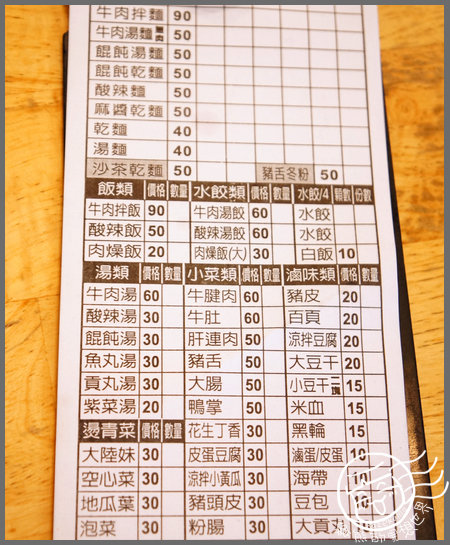 牛肉拌麵 90
牛肉湯麵 無肉 50
餛飩湯麵 50
餛飩乾麵 50
酸辣麵 50
麻醬乾麵 50
乾麵 40
湯麵 40
沙茶乾麵 50 豬舌冬粉 50
飯類 價格 數量 水餃類 價格 數量 水餃/4 顆數 份數
牛肉拌飯 90 牛肉湯餃 60 水餃
酸辣飯 50 酸辣湯餃 60 水餃
肉燥飯 20 肉燥飯(大) 30 白飯 10
湯類 價格 數量 小菜類 價格 數量 滷味類 價格 數量
牛肉湯 60 牛腱肉 60 豬皮 20
酸辣湯 30 牛肚 60 百頁 20
餛飩湯 30 肝連肉 50 涼拌豆腐 20
魚丸湯 30 豬舌 50 大豆干 20
貢丸湯 30 大腸 50 小豆干 一塊 15
紫菜湯 20 鴨掌 50 米血 15
燙青菜 價格 數量 花生丁香 30 黑輪 15
大陸妹 30 皮蛋豆腐 30 滷蛋/皮蛋 15
空心菜 30 涼拌小黃瓜 30 海帶 10
地瓜葉 30 豬頭皮 30 豆包
泡菜 30 粉腸 30 大貢丸